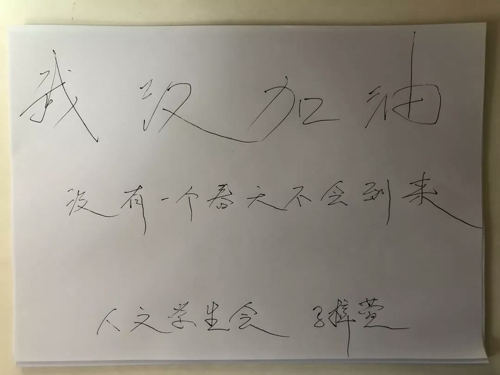 武汉加油
没有一个春天不会到来
人文学生会